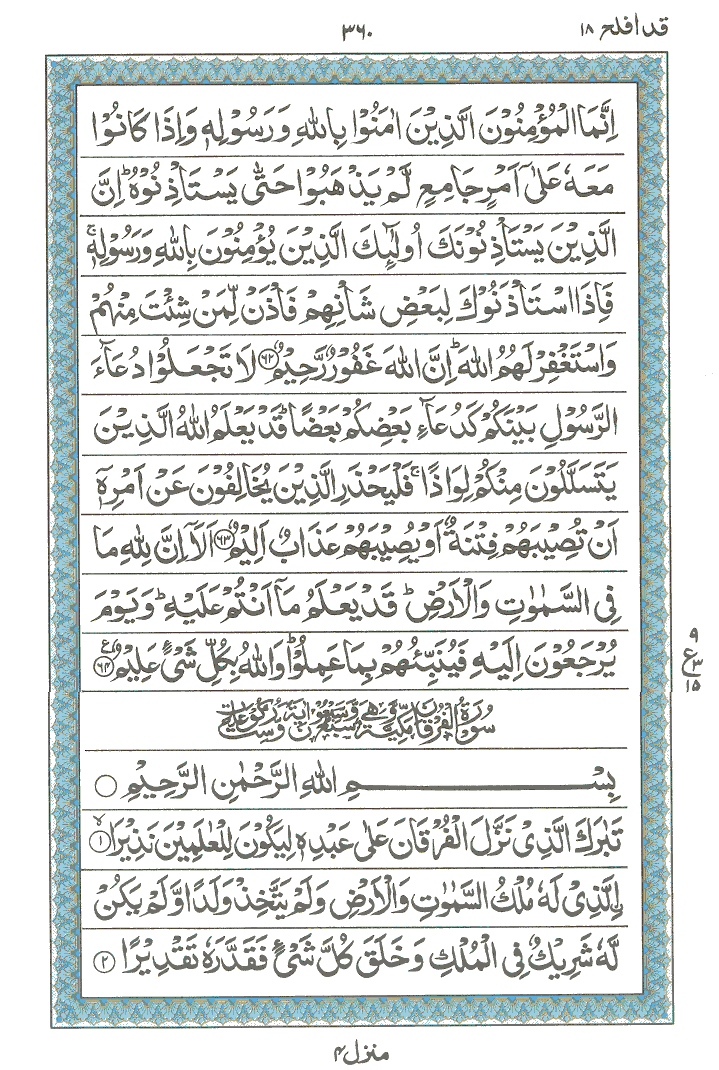 قد افلح ١٨
٣٦٠
اِنَّمَا الْمُؤْمِنُوْنَ الَّذِيْنَ اٰمَنُوْا بِاللّٰهِ وَرَسُوْلِهٖ وَاِذَا كَانُوْا
مَعَهٗ عَلٰٓى اَمْرٍ جَامِعٍ لَّمْ يَذْهَبُوْا حَتّٰى يَسْتَاْذِنُوْهُ ؕ اِنَّ
الَّذِيْنَ يَسْتَاْذِنُوْنَكَ اُولٰٓئِكَ الَّذِيْنَ يُؤْمِنُوْنَ بِاللّٰهِ وَرَسُوْلِهٖ ۚ
فَاِذَا اسْتَاْذَنُوْكَ لِبَعْضِ شَاْنِهِمْ فَاْذَنْ لِّمَنْ شِئْتَ مِنْهُمْ
وَاسْتَغْفِرْ لَهُمُ اللّٰهَ ؕ اِنَّ اللّٰهَ غَفُوْرٌ رَّحِيْمٌ ﴿٦٢﴾ لَا تَجْعَلُوْا دُعَآءَ
الرَّسُوْلِ بَيْنَكُمْ كَدُعَآءِ بَعْضِكُمْ بَعْضًا ؕ قَدْ يَعْلَمُ اللّٰهُ الَّذِيْنَ
يَتَسَلَّلُوْنَ مِنْكُمْ لِوَاذًا ۚ فَلْيَحْذَرِ الَّذِيْنَ يُخَالِفُوْنَ عَنْ اَمْرِهٖٓ
اَنْ تُصِيْبَهُمْ فِتْنَةٌ اَوْ يُصِيْبَهُمْ عَذَابٌ اَلِيْمٌ ﴿٦٣﴾ اَلَاۤ اِنَّ لِلّٰهِ مَا
فِى السَّمٰوٰتِ وَالْاَرْضِ ؕ قَدْ يَعْلَمُ مَاۤ اَنْتُمْ عَلَيْهِ ؕ وَيَوْمَ
يُرْجَعُوْنَ اِلَيْهِ فَيُنَبِّئُهُمْ بِمَا عَمِلُوْا ؕ وَاللّٰهُ بِكُلِّ شَىْءٍ عَلِيْمٌ ﴿٦٤﴾ ع
٩
ع ٣
١٥
سُوْرَةُ الْفُرْقَانِ مَكِّيَّةٌ وَّهِىَ سَبْعٌ وَّسَبْعُوْنَ اٰيَةً وَّسِتُّ رُكُوْعَاتٍ
بِسْمِ اللّٰهِ الرَّحْمٰنِ الرَّحِيْمِ
تَبٰرَكَ الَّذِىْ نَزَّلَ الْفُرْقَانَ عَلٰى عَبْدِهٖ لِيَكُوْنَ لِلْعٰلَمِيْنَ نَذِيْرًا ۙ﴿١﴾
اِۨلَّذِىْ لَهٗ مُلْكُ السَّمٰوٰتِ وَالْاَرْضِ وَلَمْ يَتَّخِذْ وَلَدًا وَّلَمْ يَكُنْ
لَّهٗ شَرِيْكٌ فِى الْمُلْكِ وَخَلَقَ كُلَّ شَىْءٍ فَقَدَّرَهٗ تَقْدِيْرًا ﴿٢﴾
منزل ٤